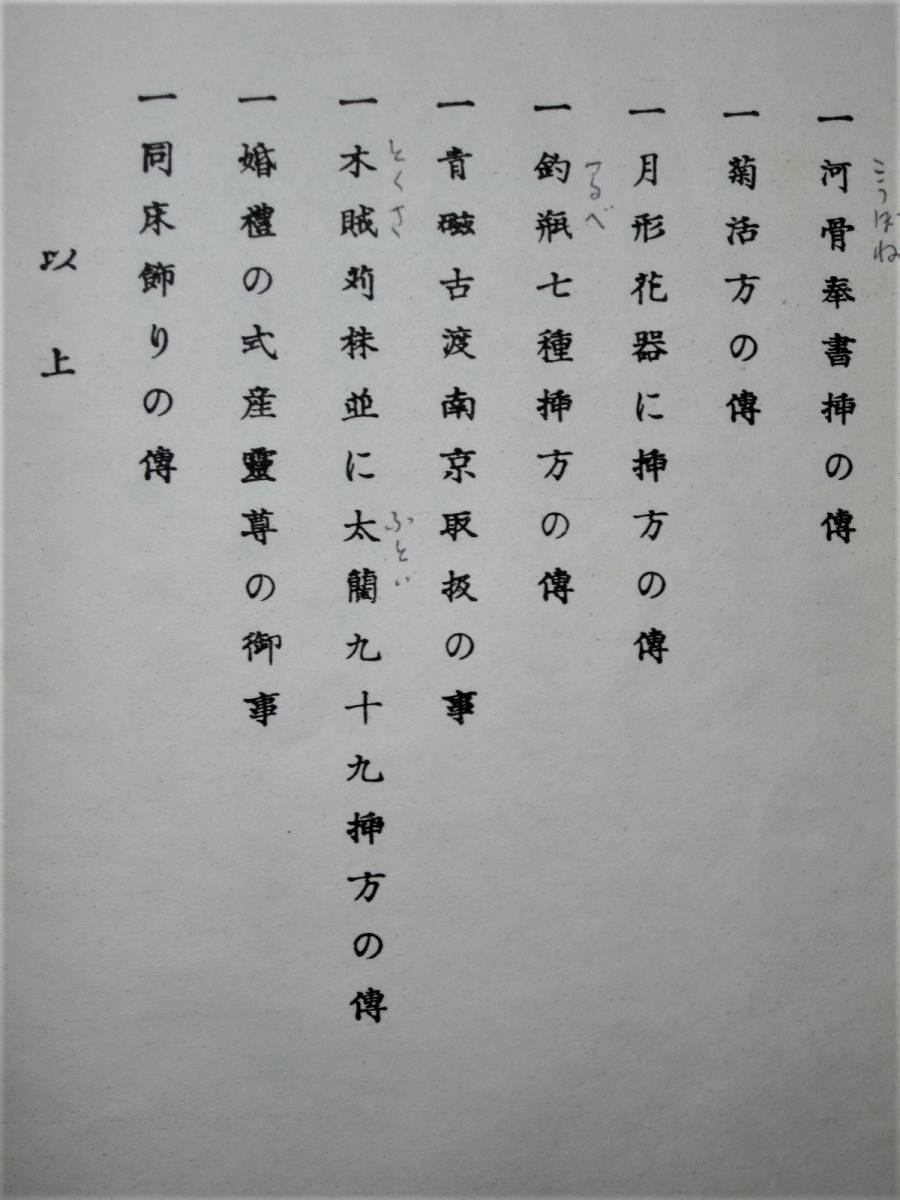 一河骨奉書揷の傳
こうほね
一菊活方の傳
一月形花器に揷方の傳
一釣瓶七種揷方の傳
つるべ
一青磁古渡南京取扱の事
一木賊苅株並に太藺九十九揷方の傳
とくさ
ふとい
一婚禮の式産靈尊の御事
一同床飾りの傳
以上